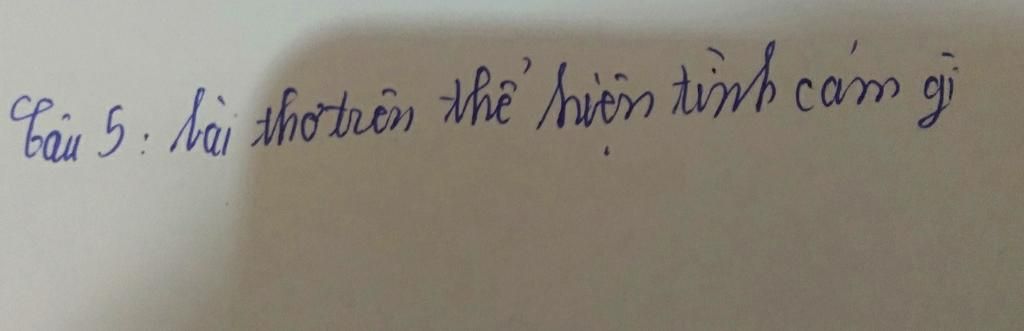 Câu 5: bài thơ trên thể hiện tình cảm gì